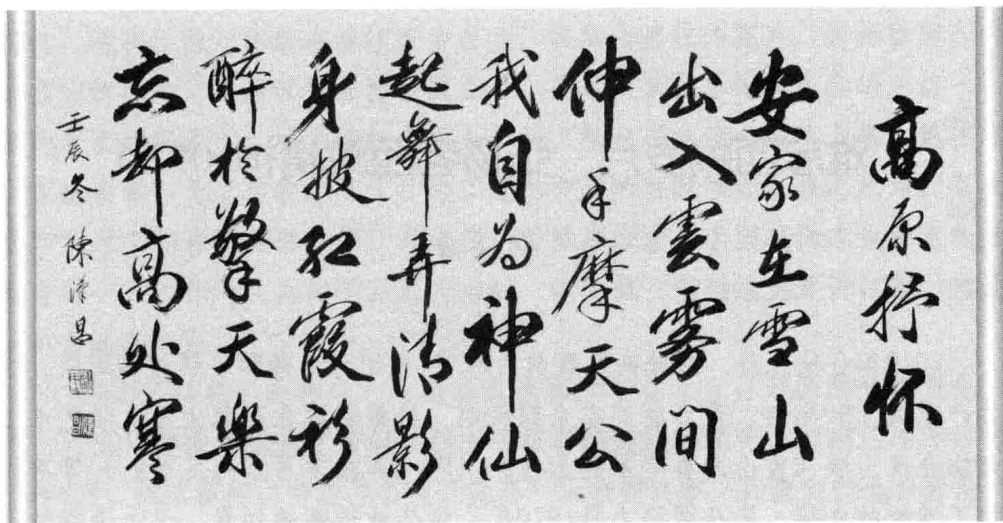 高原抒怀
安家在雪山
出入雲雾间
伸手摩天公
我自为神仙
起舞弄清影
身披红霞衫
醉於擎天樂
忘却高处寒
壬辰冬 陳泽昌